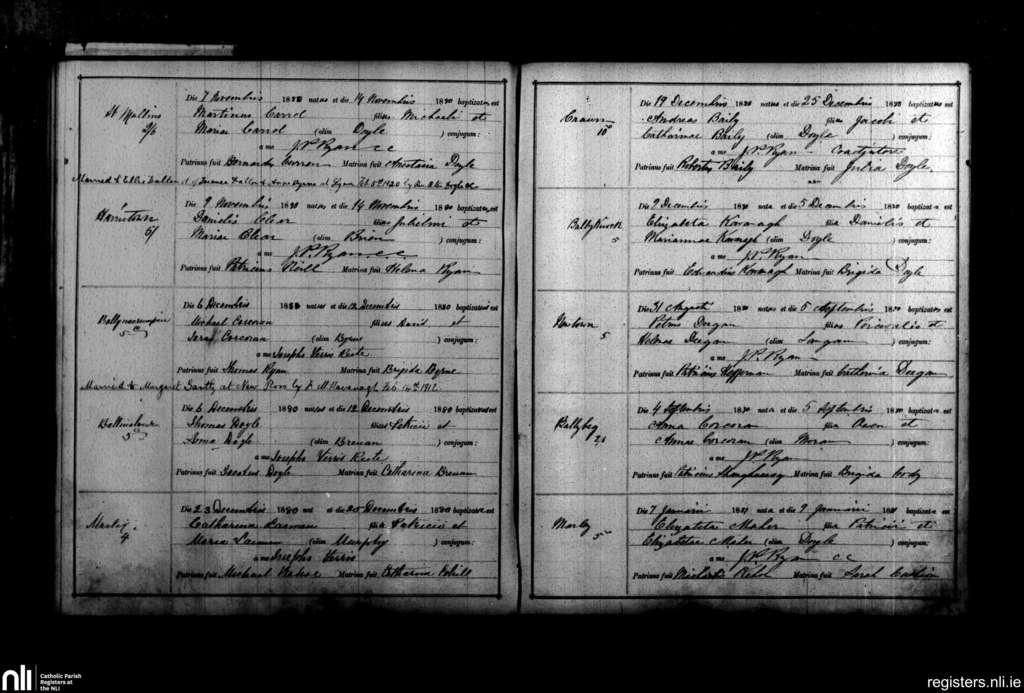 St Mullins
2/6
Die 7 Novembris 1880 natus et die 14 Novembris 1880 baptizatus est
Martinus Carrol filius Michaeli et
Mariae Carrol (olim Doyle ) conjugum:
a me J.P. Ryan CC
Patrinus fuit Bernardus Matrina fuit Anastasia Doyle
Married to Ellen of & Anne Byrne at Feb 5th 1920 by Rev.
5/
Die 9 Novembris 1880 natus et die 14 Novembris 1880 baptizatus est
Danielis Clear filius et
Mariae Clear (olim Brien ) conjugum:
a me J.P. Ryan CC
Patrinus fuit Patricius Matrina fuit Helena Ryan
5
Die 6 Decembris 1880 natus et die 12 Decembris 1880 baptizatus est
Michael Corcoran filius David et
Sara Corcoran (olim Byrne ) conjugum:
a me Josepho
Patrinus fuit Thomas Ryan Matrina fuit Brigida Byrne
Married to Margaret at New Ross by F. M. Kavanagh Feb. 14th 1912.
5
Die 6 Decembris 1880 natus et die 12 Decembris 1880 baptizatus est
Thomas Doyle filius Patricii et
Anna Doyle (olim Brenan ) conjugum:
a me Josepho
Patrinus fuit Doyle Matrina fuit Catharina Brenan
4
Die 23 Decembris 1880 nata et die 25 Decembris 1880 baptizata est
Catharina filia Patricii et
Maria (olim Murphy ) conjugum:
a me Josepho
Patrinus fuit Michael Matrina fuit Catharina
10
Die 19 Decembris 1880 natus et die 25 Decembris 1880 baptizatus est
Andreas Baily filius Jacobi et
Catharinae Baily (olim Doyle ) conjugum:
a me J.P. Ryan
Patrinus fuit Robertus Baily Matrina fuit Julia Doyle
5
Die 2 Decembris 1880 nata et die 5 Decembris 1880 baptizata est
Elizabeta Kavanagh filia Danielis et
Mariannae Kavanagh (olim Doyle ) conjugum:
a me J.P. Ryan
Patrinus fuit Edwardus Kavanagh Matrina fuit Brigida Doyle
Newtown
5
Die 31 Augusti 1880 natus et die 5 Septembris 1880 baptizatus est
Petrus Deegan filius et
Helenae Deegan (olim ) conjugum:
a me J.P. Ryan
Patrinus fuit Patricius Heffernan Matrina fuit Deegan
Ballybeg
Die 4 Septembris 1880 nata et die 5 Septembris 1880 baptizata est
Anna Corcoran filia Owen et
Annae Corcoran (olim Moran ) conjugum:
a me J.P. Ryan
Patrinus fuit Patricius Shaughnessy Matrina fuit Brigida Cody
Marley
5
Die 7 Januarii 1881 nata et die 9 Januarii 1881 baptizata est
Elizabetae Maher filia Patricii et
Elizabetae Maher (olim Doyle ) conjugum:
a me J.P. Ryan CC
Patrinus fuit Michael Matrina fuit Sarah
nli
Catholic Parish
Registers at
the NLI
registers.nli.ie